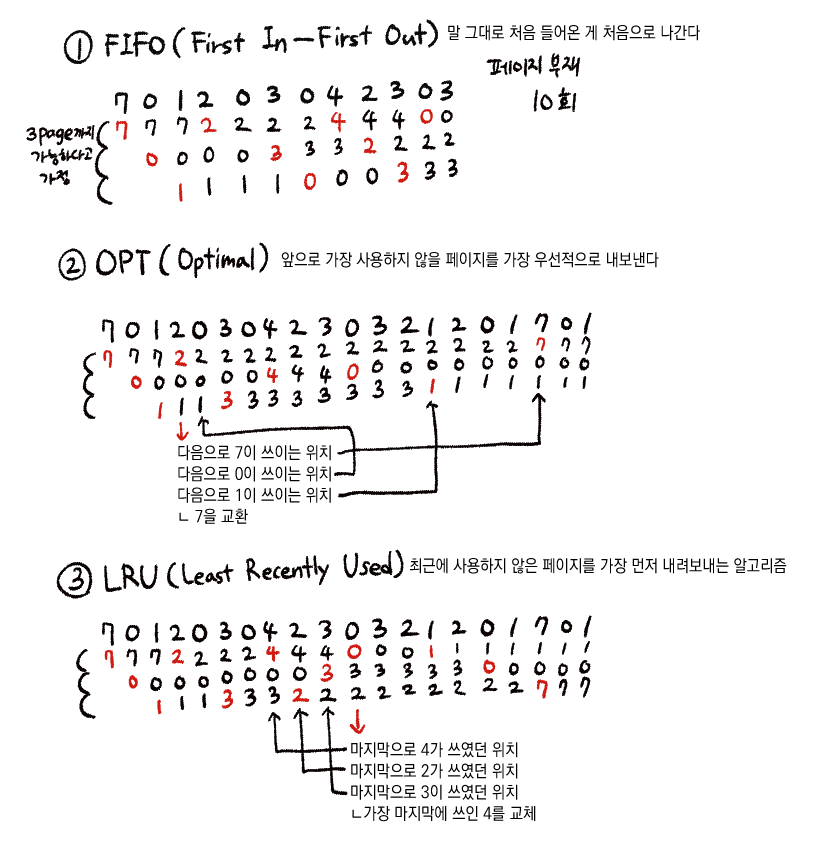 ① FIFO (First In-First Out) 말 그대로 처음 들어온 게 처음으로 나간다
페이지 부재
10회
7 0 1 2 0 3 0 4 2 3 0 3
7 7 7 2 2 2 2 4 4 4 0 0
3page까지
가능하다고
가정
0 0 0 0 3 3 3 2 2 2 2
1 1 1 1 0 0 0 3 3 3
② OPT (Optimal) 앞으로 가장 사용하지 않을 페이지를 가장 우선적으로 내보낸다
7 0 1 2 0 3 0 4 2 3 0 3 2 1 2 0 1 7 0 1
7 7 7 2 2 2 2 2 2 2 2 2 2 2 2 2 2 7 7 7
0 0 0 0 0 0 4 4 4 0 0 0 0 0 0 0 0 0 0
1 1 1 3 3 3 3 3 3 3 3 1 1 1 1 1 1 1
다음으로 7이 쓰이는 위치
다음으로 0이 쓰이는 위치
다음으로 1이 쓰이는 위치
ㄴ 7을 교환
③ LRU (Least Recently Used) 최근에 사용하지 않은 페이지를 가장 먼저 내려보내는 알고리즘
7 0 1 2 0 3 0 4 2 3 0 3 2 1 2 0 1 7 0 1
7 7 7 2 2 2 2 4 4 4 0 0 0 1 1 1 1 1 1 1
0 0 0 0 0 0 0 0 3 3 3 3 3 3 0 0 0 0 0
1 1 1 3 3 3 2 2 2 2 2 2 2 2 2 7 7 7
마지막으로 4가 쓰였던 위치
마지막으로 2가 쓰였던 위치
마지막으로 3이 쓰였던 위치
ㄴ가장 마지막에 쓰인 4를 교체